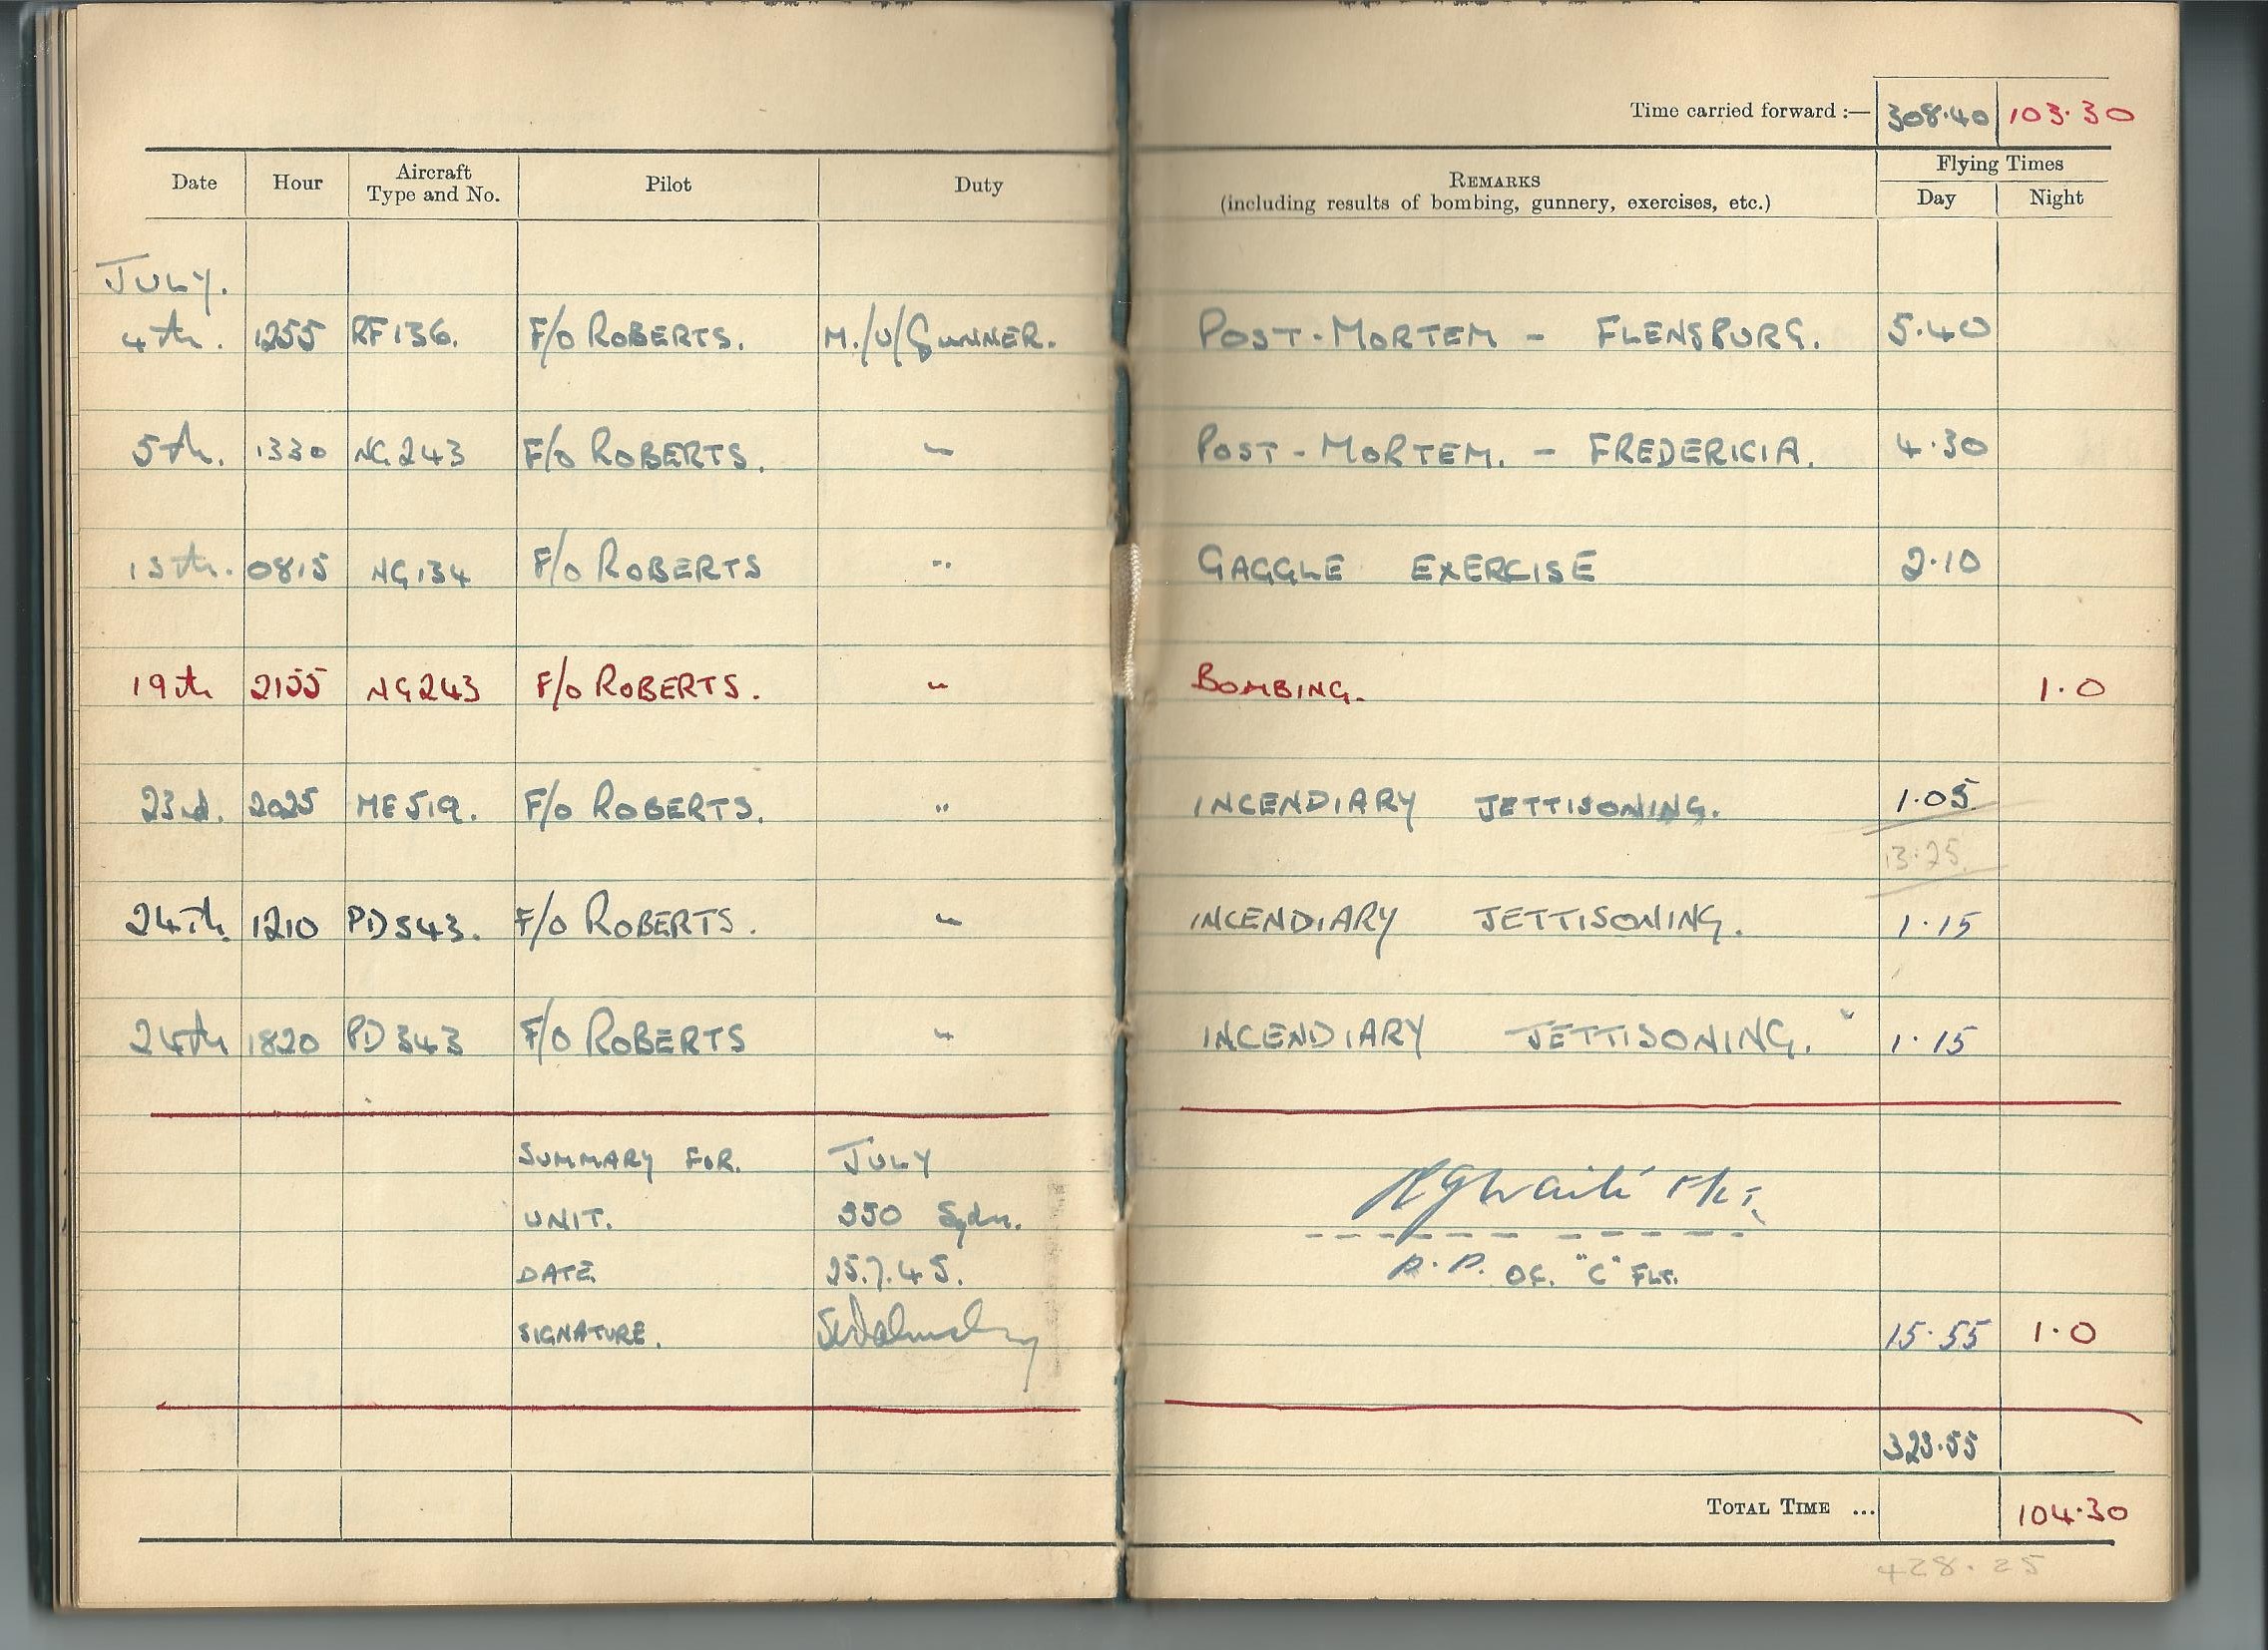 Time carried forward :— 308·40 103·30
Date Hour Aircraft Type and No. Pilot Duty REMARKS (including results of bombing, gunnery, exercises, etc.) Flying Times Day Night
JULY.
4th. 1255 RF136. F/O ROBERTS. M./U/GUNNER. POST-MORTEM - FLENSBURG. 5·40
5th. 1330 NG243 F/O ROBERTS. " POST-MORTEM. - FREDERICIA. 4·30
13th. 0815 NG134 F/O ROBERTS " GAGGLE EXERCISE 2·10
19th 2155 NG243 F/O ROBERTS. " BOMBING. 1·0
23rd. 2025 ME519. F/O ROBERTS. " INCENDIARY JETTISONING. 1·05
13·25
24th. 1210 PD343. F/O ROBERTS. " INCENDIARY JETTISONING. 1·15
24th 1820 PD343 F/O ROBERTS " INCENDIARY JETTISONING. 1·15
SUMMARY FOR. JULY
UNIT. 550 Sqdn.
DATE 25.7.45.
P.P. OC. "C" FLT.
SIGNATURE. 15·55 1·0
323·55
TOTAL TIME ... 104·30
428·25